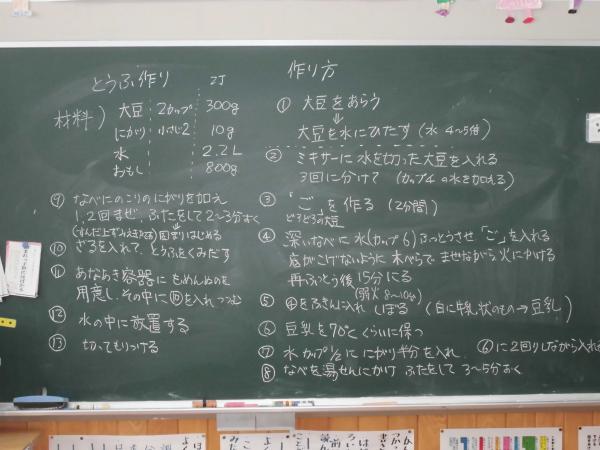 とうふ作り
材料)
大豆 2カップ 300g
にがり 小さじ2 10g
水 2.2L
おもし 800g
作り方
① 大豆をあらう
⇓
大豆を水にひたす (水 4~5倍)
② ミキサーに水を切った大豆を入れる
3回に分けて (カップ4の水を加える)
③ 「ご」を作る (2分間)
どろどろの大豆
④ 深いなべに水(カップ6)ふっとうさせ「ご」を入れる
底がこげないように木べらでまぜながら火にかける
再ふっとう後15分にる
(弱火 8~10分)
⑤ ④をふきんに入れ しぼる (白い牛乳状のもの→豆乳)
⑥ 豆乳を70℃くらいに保つ
⑦ 水カップ1/2ににがり半分を入れ ⑥に2回りしながら入れる
⑧ なべを湯せんにかけ ふたをして 3~5分おく
⑨ なべにのこりのにがりを加え
1,2回まぜ、ふたをして2~3分おく
固まりはじめる
⑩ ざるを入れて、とうふをくみだす
⑪ あなあき容器にもめんぬのを
用意し、その中に⑩を入れつつむ
⑫ 水の中に放置する
⑬ 切ってもりつける